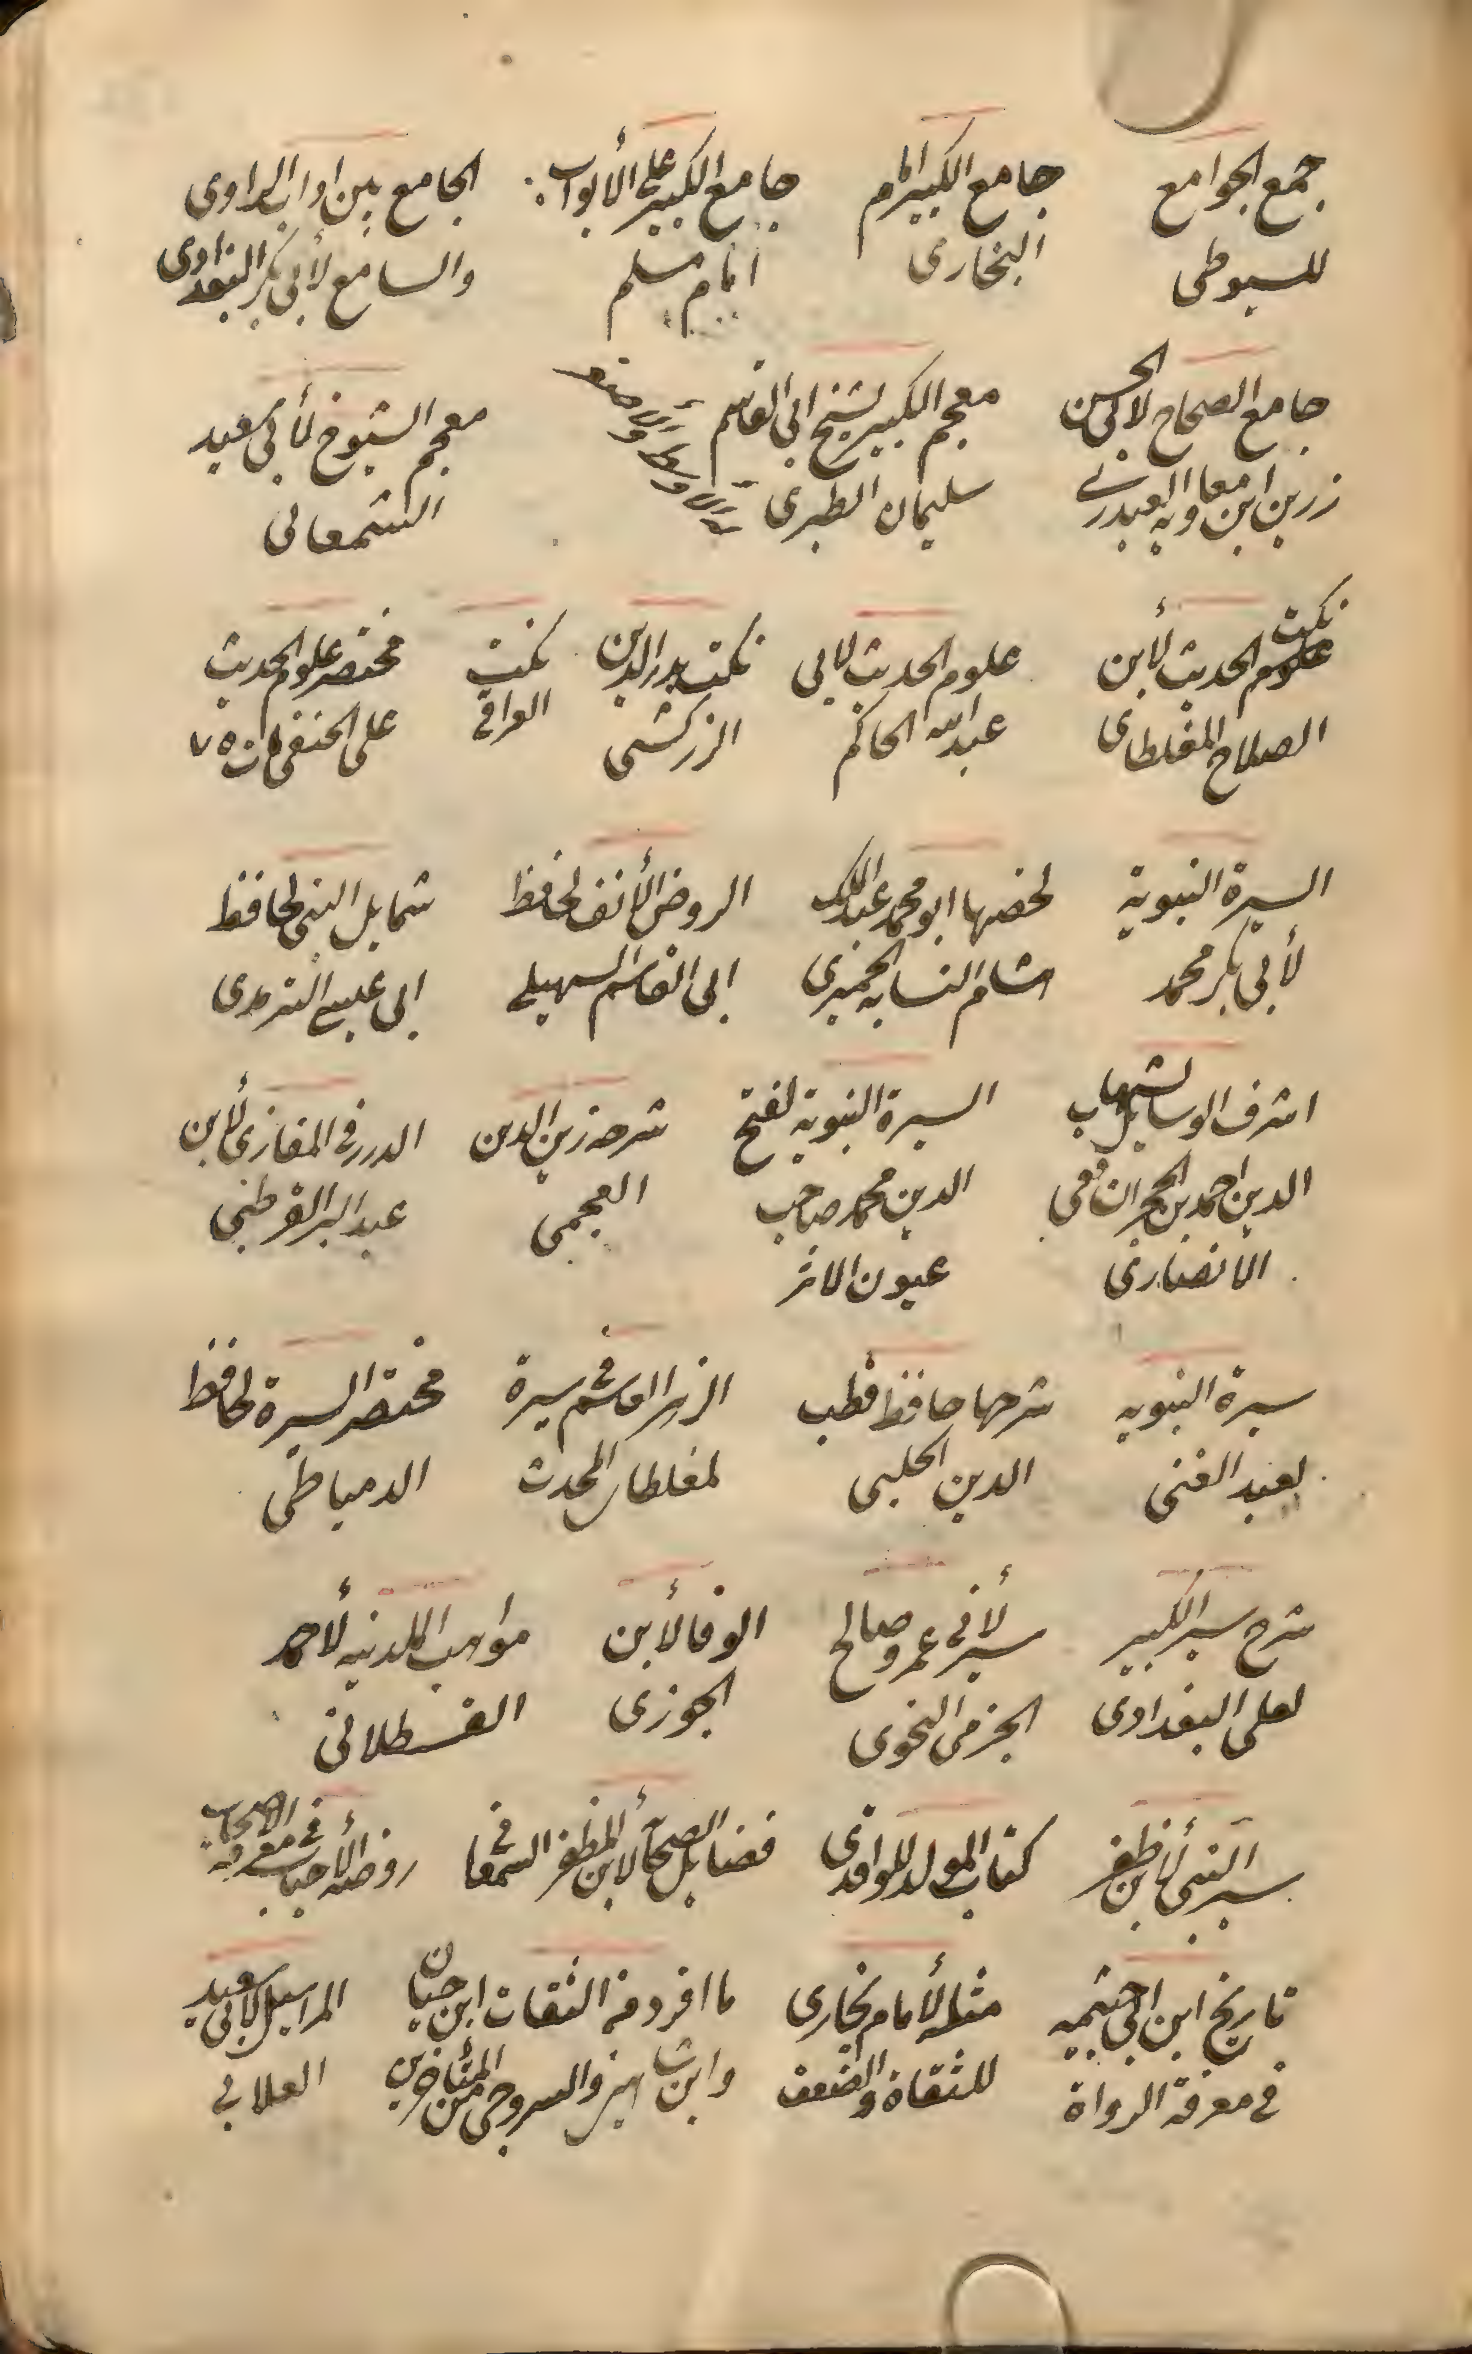 جمع الجوامع
للسيوطى
جامع الكبير امام
البخارى
جامع الكبير على الأبواب
امام مسلم
الجامع بين اداب الراوى
والسامع لأبى بكر البغدادى
جامع الصحاح لابى الحسن
زرين ابن معاويه العبدرى
معجم الكبير لشيخ ابى القاسم
سليمان الطبرى
معجم الشيوخ لأبى سعيد
السمعانى
نكت
علوم الحديث لأبن
الصلاح المغلطاى
علوم الحديث لابى
عبد الله الحاكم
نكت بدر الدين
الزركشى
نكت
العراقى
مختصر علوم الحديث
على الحنفى مات ٧٥٠
السيرة النبوية
لأبى بكر محمد
لخصها ابو محمد عبد الملك
هشام النسابه الحميرى
الروض الأنف لحافظ
ابى القاسم السهيلى
شمايل النبى لحافظ
ابى عيسى الترمدى
اشرف الوسايل لشهاب
الدين احمد بن الحجر
الانصارى
السيرة النبوية لفتح
الدين محمد صاحب
عيون الاثر
شرحه زين الدين
العجمى
الدرر فى المغازى لأبن
عبد البر القرطبى
سيرة النبويه
لعبد الغنى
شرحها حافظ قطب
الدين الحلبى
الزهر الباسم فى سيرة
لمغلطاى المحدث
مختصر السيرة لحافظ
الدمياطى
شرح سير الكبير
لعلى البغدادى
سير لأبى عمرو صالح
الجزمى النحوى
الوفا لأبن
الجوزى
مواهب اللدنيه لأحمد
القسطلانى
سير النبى لأبن ظفر
كتاب المولد للواقدى
فضايل الصحابة لابن المظفر السمعانى
روضة الأحباب فى معرفة الاصحاب
تاريخ ابن ابى خيثمه
فى معرفة الرواة
مثله لأمام بخارى
للثقاة والضعف
ما افرد فى الثقات ابن حبان
وابن شاهين والسروجى من المتأخرين
المراسيل لأبى سعيد
العلائى